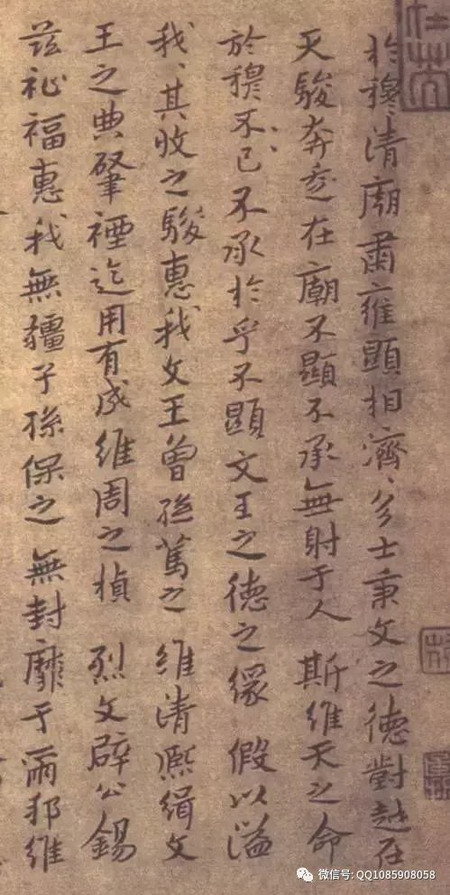 於穆、清廟肅雍顯相濟、多士秉文之德對越在
天駿奔走在廟不顯不承無射于人 斯維天之命
於穆不已不承於乎不顯文王之德之 假以溢
我、其收之駿惠我文王曾孫篤之 維清熙緝文
王之典肇禋迄用有成維周之楨 烈文辟公錫
茲祉福惠我無疆子孫保之無封靡于爾邦維
微信号: QQ1085908058